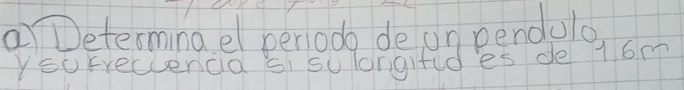 a) Determina el periodo de un pendulo
y su frecuencia si su longitud es de 1.6m